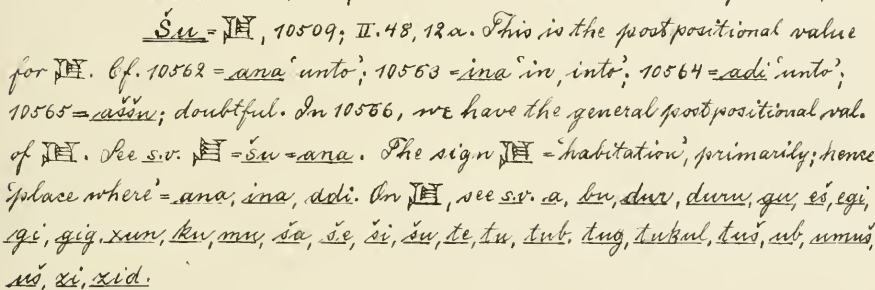 Šu = 𒂠, 10509; II. 48, 12a. This is the postpositional value
for 𒂠. Cf. 10562 = ana 'unto'; 10563 = ina 'in, into'; 10564 = adi 'unto';
10565 = aššu; doubtful. In 10566, we have the general postpositional val.
of 𒂠. See s.v. = šu = ana. The sign 𒂠 = 'habitation', primarily; hence
'place where' = ana, ina, adi. On 𒂠, see s.v. a, bu, dur, duru, gu, eš, egi,
gi, gig, xun, ku, mu, ša, še, ši, šu, te, tu, tub, tug, tukul, tuš, ub, umuš,
uš, zi, zid.